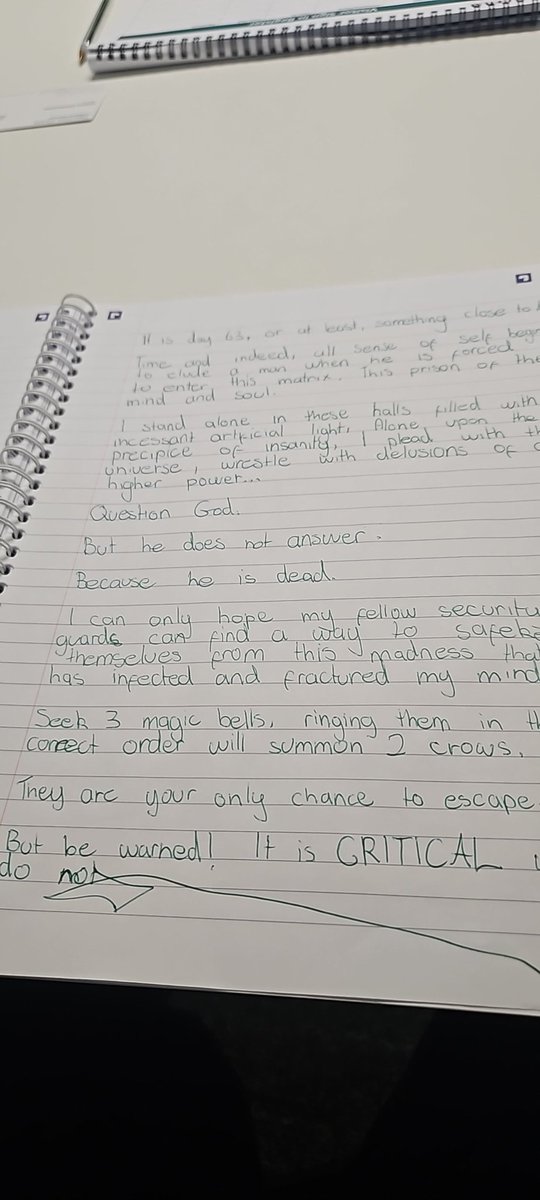 It is day 63, or at least, something close to
Time and indeed, all sense of self
to elude a man when he is forced
to enter this matrix. This prison of the
mind and soul.
I stand alone in these halls filled with
incessant artificial light, Alone upon the
precipice of insanity, I plead with
universe, wrestle with delusions of
higher power...
Question God.
But he does not answer.
Because he is dead.
I can only hope my fellow security
guards can find a way to
themselves from this madness
has infected and fractured my mind
Seek 3 magic bells, ringing them in
correct order will summon 2 crows.
They are your only chance to escape
But be warned! It is CRITICAL
do not